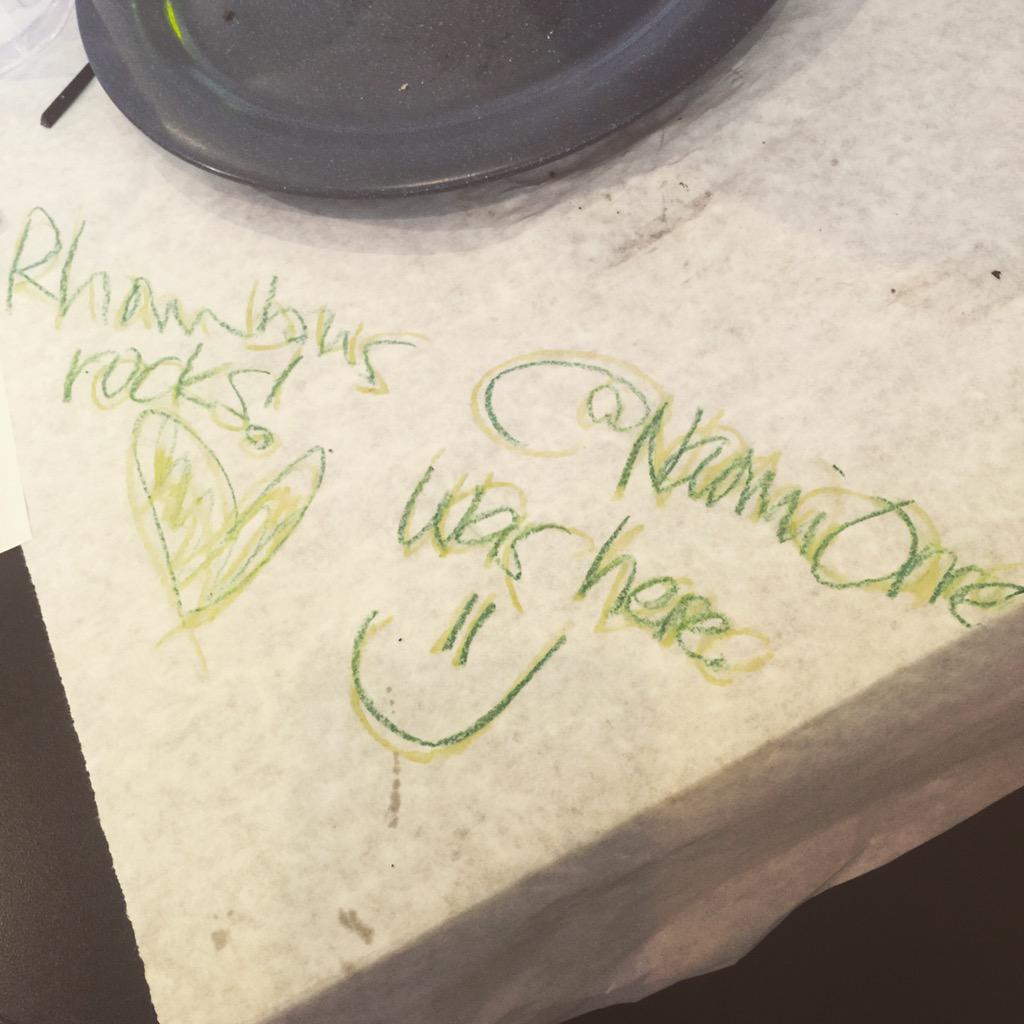 Rhambus
rocks!
@NamiOne
was here